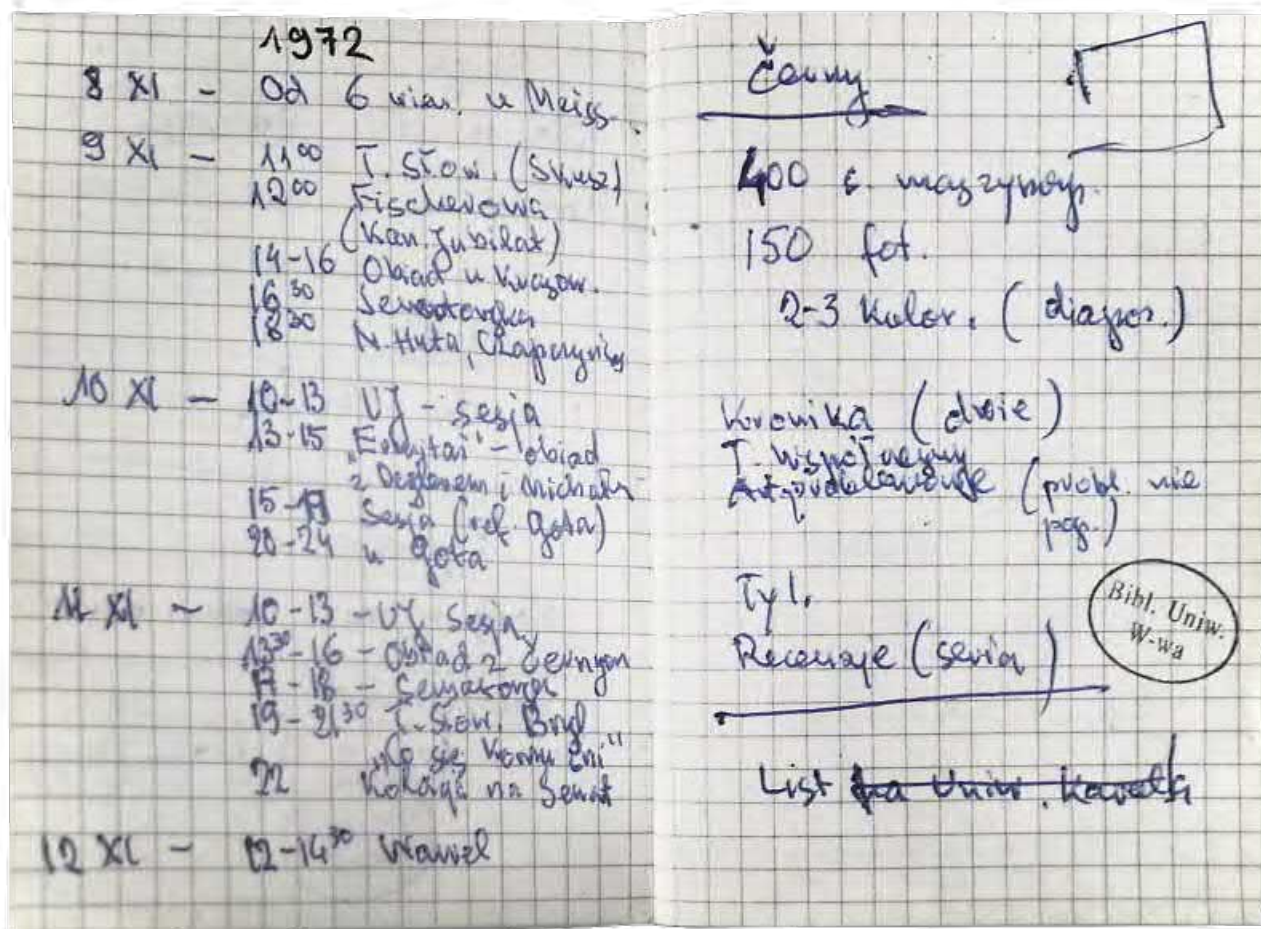 1972
8 XI - Od 6 wiecz. u Meiss.
9 XI - 11⁰⁰ T. Słow. (Skusz.)
12⁰⁰ Fischerowa
(Kaw. Jubilat)
14-16 Obiad u
16³⁰
18³⁰ N. Huta,
10 XI - 10-13 UJ - sesja
13-15 „Ermitaż" - obiad
z Deglerem i Michalik
15-19 Sesja (ref. Gota)
20-24 u Gota
11 XI - 10-13 - UJ Sesja
13³⁰-16 - Obiad z Černym
17-18 -
19-21³⁰ T. Słow. Bryl
„Co się komu śni"
22 Kolacja na
12 XI - 12-14³⁰ Wawel
Černy
400 s. maszynop.
150 fot.
2-3 Kolor. (diapoz.)
Kronika (dwie)
T. Współczesny
(probl. nie
pog.)
Tyl.
Recenzje (seria)
Bibl. Uniw.
W-wa
List na Uniw. Karola